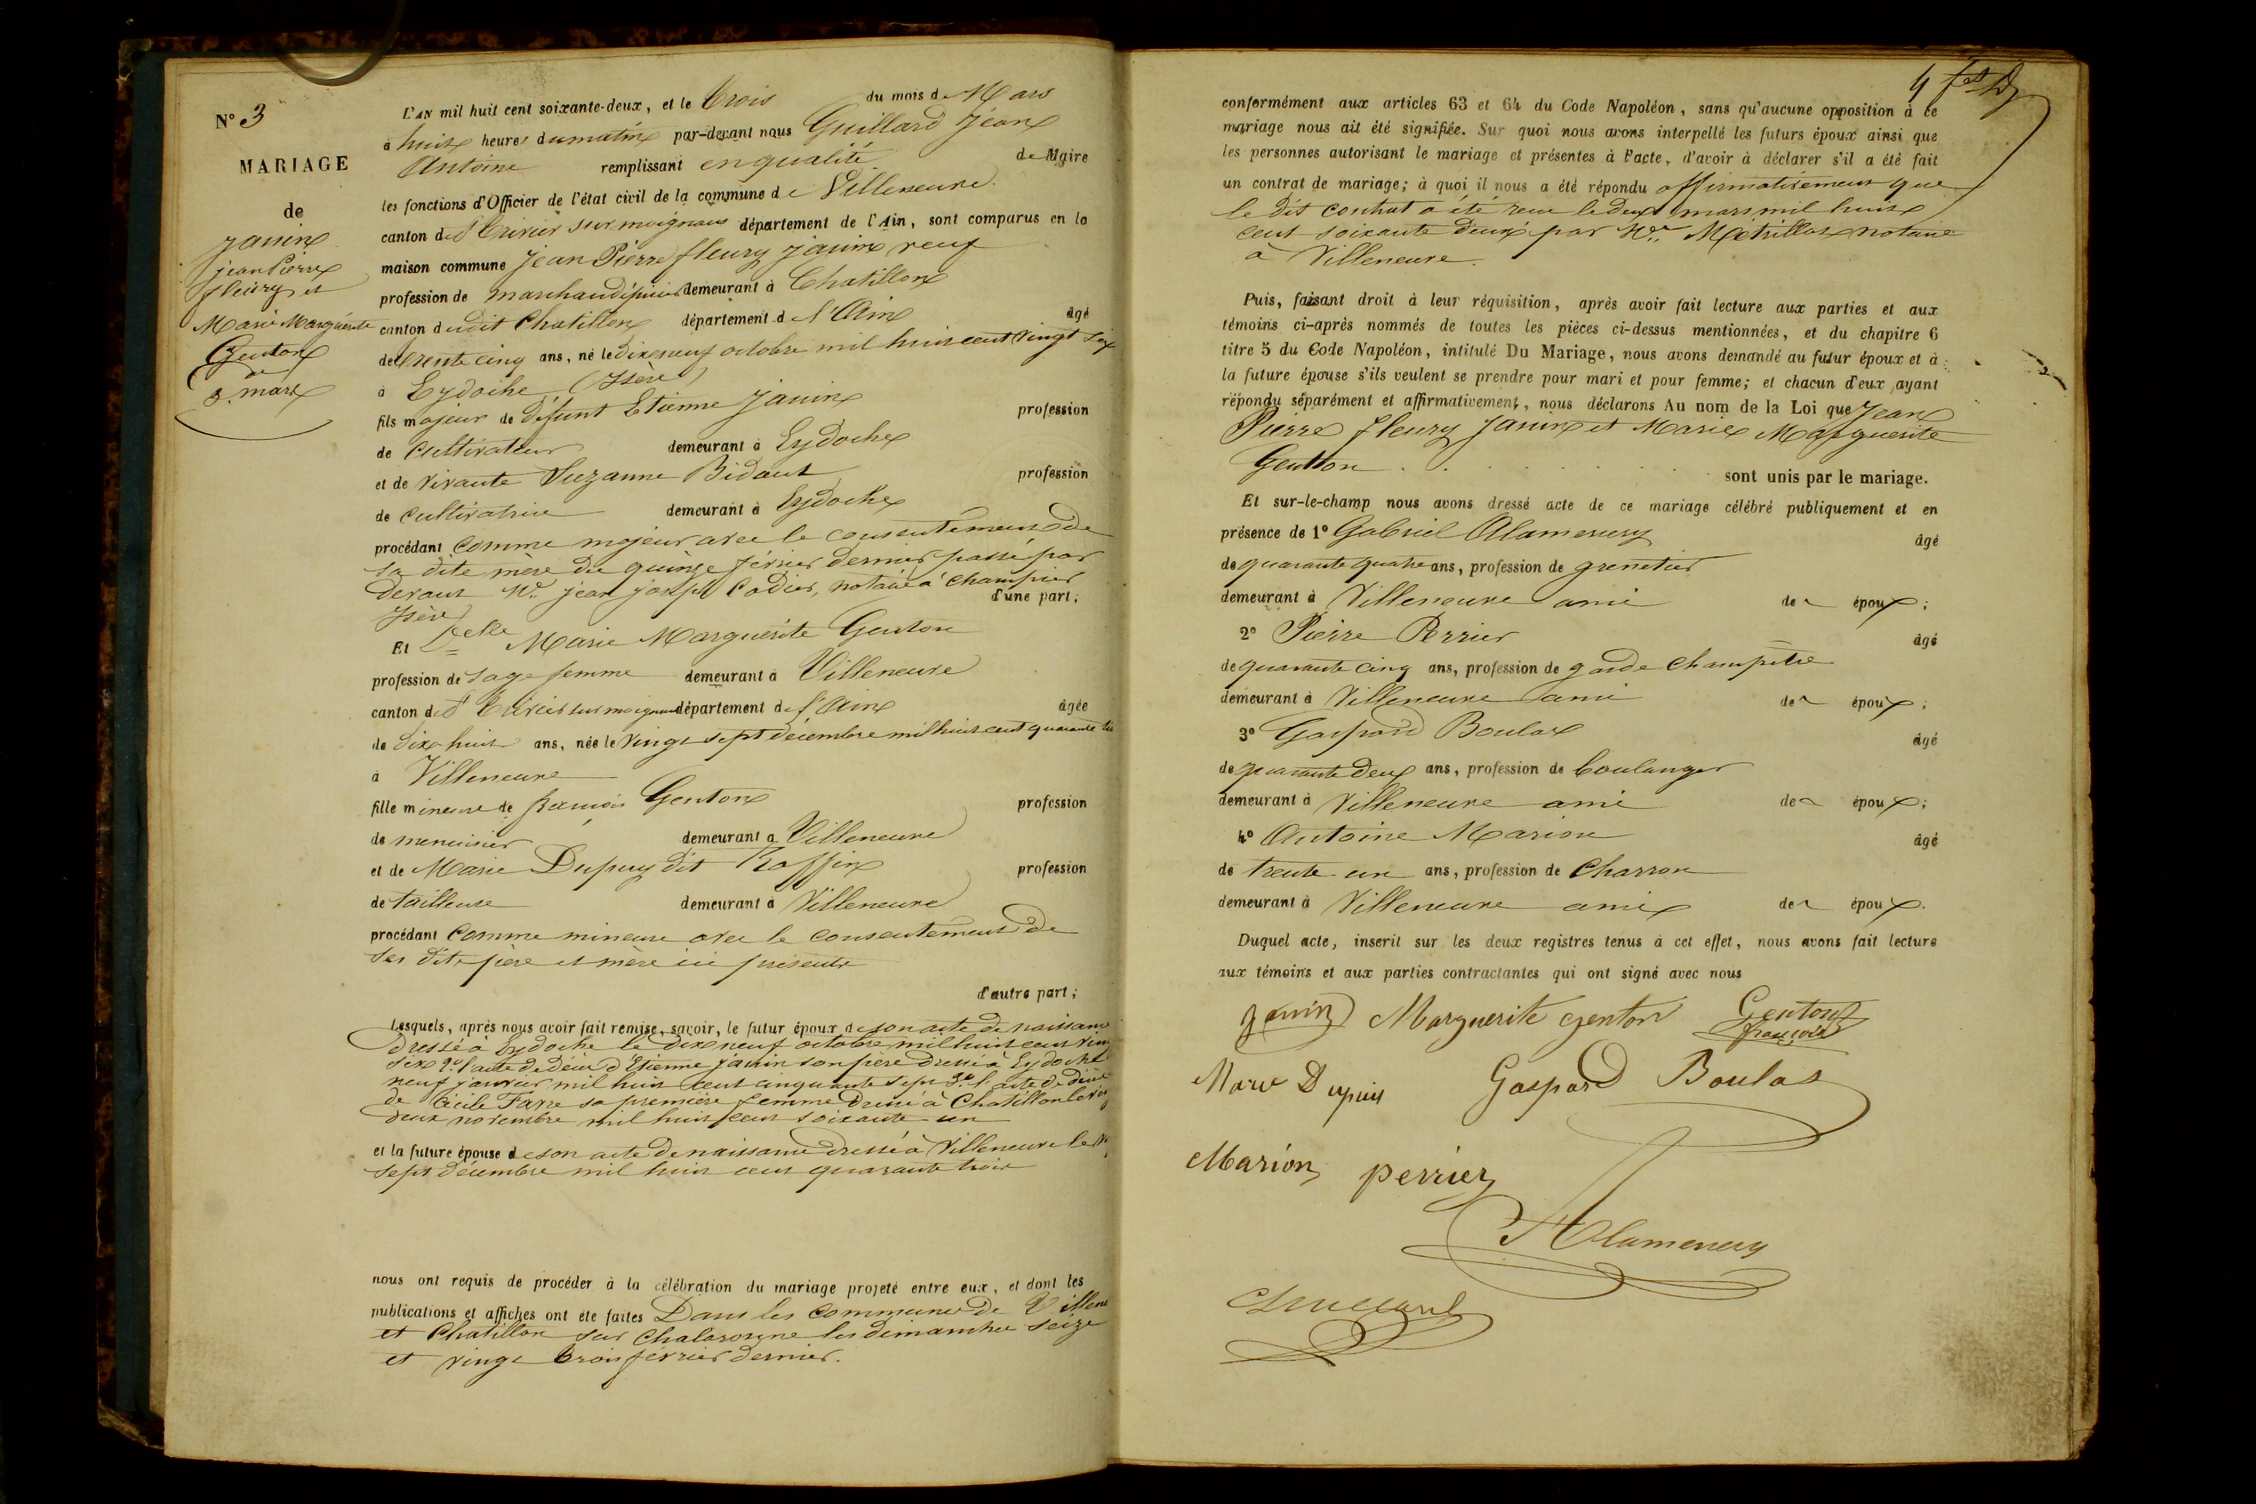 N° 3
MARIAGE
de
Janin
Jean Pierre
fleury et
Marie Marguerite
Genton
du
3. mars
L'AN mil huit cent soixante-deux, et le trois du mois de Mars
à huit heures du matin par-devant nous Guillard Jean
Antoine remplissant en qualité de Maire
les fonctions d'Officier de l'état civil de la commune de Villeneuve
canton de St Trivier sur moignans département de l'Ain, sont comparus en la
maison commune Jean Pierre fleury Janin veuf
profession de marchand épicier demeurant à Chatillon
canton dudit Chatillon département de l'Ain âgé
de trente cinq ans, né le dix neuf octobre mil huit cent vingt six
à Eydoche (Isère)
fils majeur de défunt Etienne Janin profession
de cultivateur demeurant à Eydoche
et de vivante Suzanne Bidaut profession
de cultivatrice demeurant à Eydoche
procédant comme majeur avec le consentement de
sa dite mère du quinze février dernier passé par
devant Me jean joseph Cadier, notaire à Champier
Isère d'une part;
Et Delle Marie Marguerite Genton
profession de sage femme demeurant à Villeneuve
canton de St Trivier sur moignans département de l'Ain âgée
de dix huit ans, née le vingt sept décembre mil huit cent quarante
à Villeneuve
fille mineure de françois Genton profession
de menuisier demeurant à Villeneuve
et de Marie Dupuy dit Roffin profession
de tailleuse demeurant à Villeneuve
procédant comme mineure avec le consentement de
ses dits père et mère ici présents
d'autre part;
Lesquels, après nous avoir fait remise, savoir, le futur époux de son acte de naissance
dressé à Eydoche le dix neuf octobre mil huit cent
six 2° l'acte de décès d'Etienne Janin son père dressé à Eydoche
neuf janvier mil huit cent cinquante sept 3° l'acte de décès
de Cécile Favre sa première femme dressé à Chatillon le
deux novembre mil huit cent soixante un
et la future épouse de son acte de naissance dressé à Villeneuve le
sept décembre mil huit cent quarante trois
nous ont requis de procéder à la célébration du mariage projeté entre eux, et dont les
publications et affiches ont été faites Dans les communes de Villene
et Chatillon sur Chalaronne les dimanches seize
et vingt trois février dernier.
4
conformément aux articles 63 et 64 du Code Napoléon, sans qu'aucune opposition à ce
mariage nous ait été signifiée. Sur quoi nous avons interpellé les futurs époux ainsi que
les personnes autorisant le mariage et présentes à l'acte, d'avoir à déclarer s'il a été fait
un contrat de mariage; à quoi il nous a été répondu affirmativement que
le dit contrat a été reçu le deux mars mil huit
cent soixante deux par Me Métrillot notaire
à Villeneuve.
Puis, faisant droit à leur réquisition, après avoir fait lecture aux parties et aux
témoins ci-après nommés de toutes les pièces ci-dessus mentionnées, et du chapitre 6
titre 5 du Code Napoléon, intitulé Du Mariage, nous avons demandé au futur époux et à
la future épouse s'ils veulent se prendre pour mari et pour femme; et chacun d'eux ayant
répondu séparément et affirmativement, nous déclarons Au nom de la Loi que Jean
Pierre fleury Janin et Marie Marguerite
Genton sont unis par le mariage.
Et sur-le-champ nous avons dressé acte de ce mariage célébré publiquement et en
présence de 1° Gabriel Alamercery âgé
de quarante quatre ans, profession de grenetier
demeurant à Villeneuve ami de époux;
2° Pierre Perrier âgé
de quarante cinq ans, profession de garde champêtre
demeurant à Villeneuve ami de époux;
3° Gaspard Boulas âgé
de quarante deux ans, profession de boulanger
demeurant à Villeneuve ami de époux;
4° Antoine Marion âgé
de trente un ans, profession de Charron
demeurant à Villeneuve ami de époux.
Duquel acte, inscrit sur les deux registres tenus à cet effet, nous avons fait lecture
aux témoins et aux parties contractantes qui ont signé avec nous
Janin Marguerite genton Genton
françois
Marie Dupuis Gaspard Boulas
Marion perrier
Alamercery
Guillard